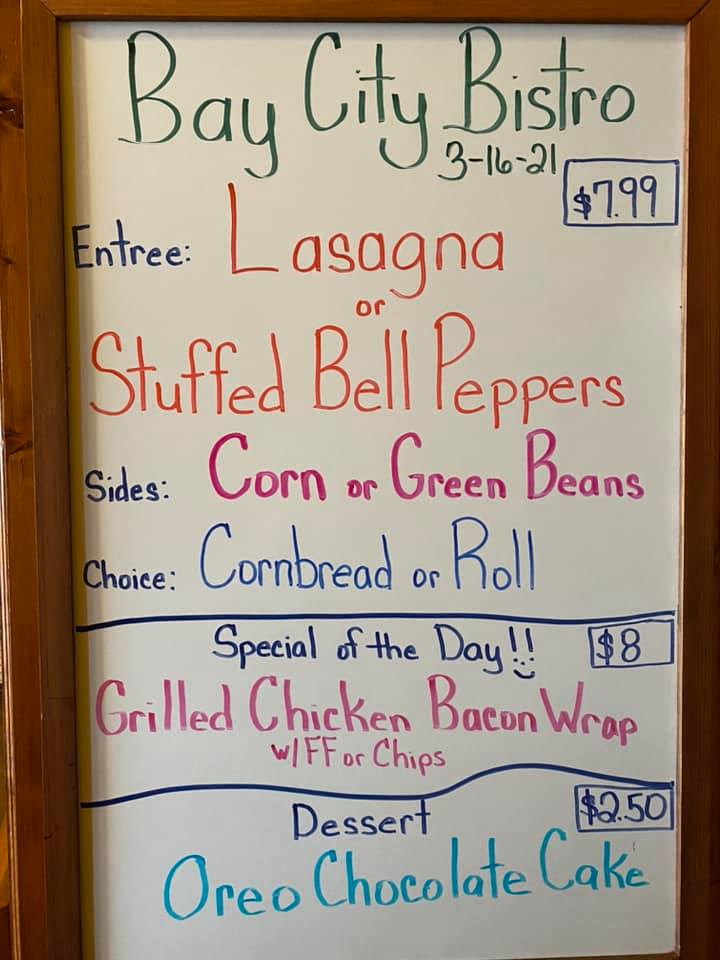 Bay City Bistro
3-16-21
$7.99
Entree: Lasagna
or
Stuffed Bell Peppers
Sides: Corn or Green Beans
Choice: Cornbread or Roll
Special of the Day!! $8
Grilled Chicken Bacon Wrap
w/ FF or Chips
Dessert $2.50
Oreo Chocolate Cake